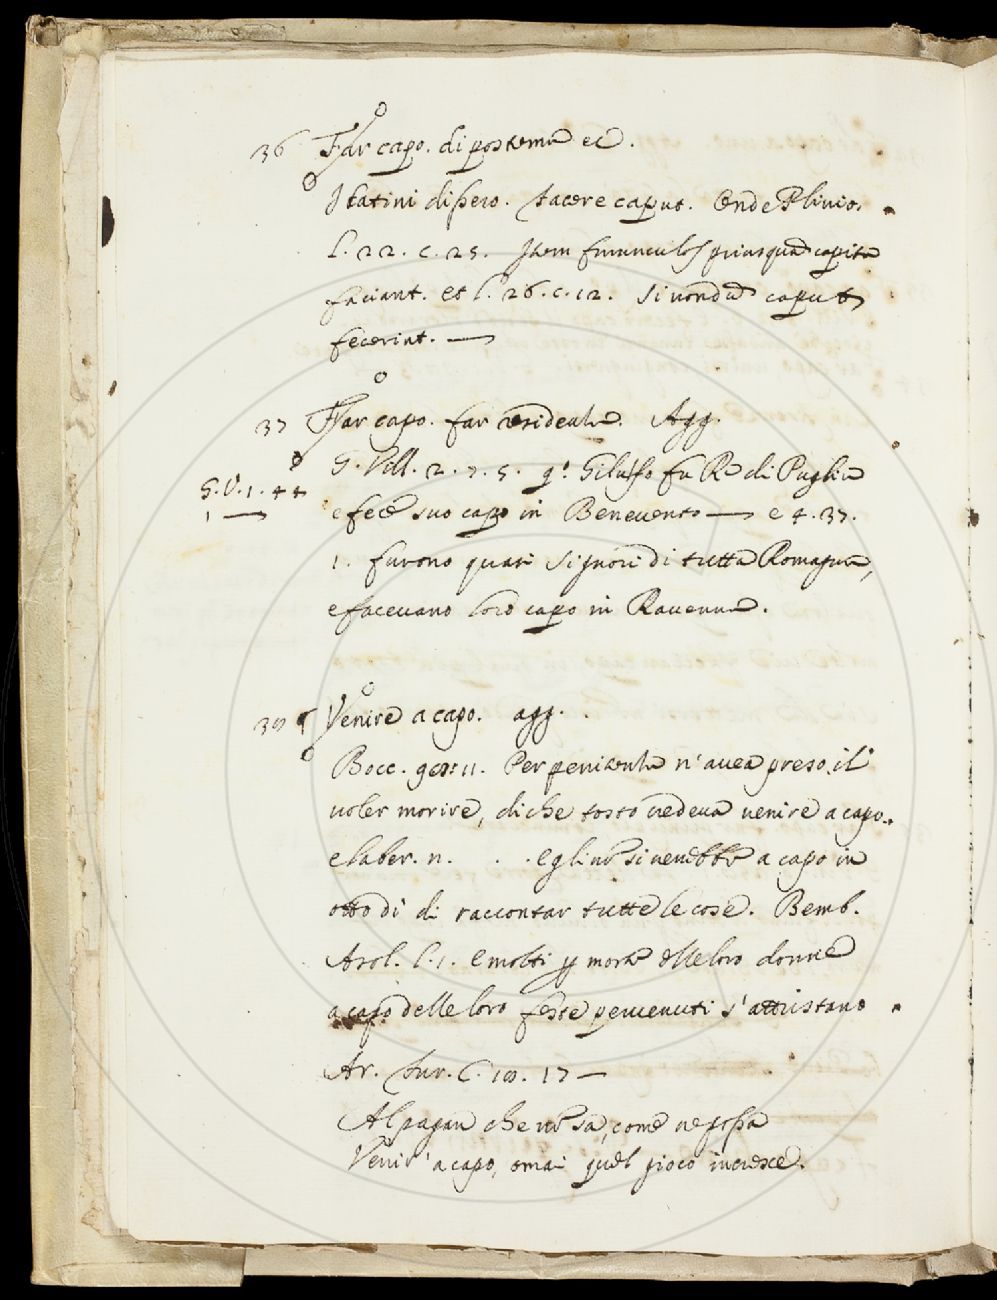 36 Far capo. di postema ec.
I latini dissero. facere caput. Onde Plinio.
l. 22. c. 25. Item furunculos priusquã capita
faciant. et l. 26. c. 12. si nondũ caput
fecerint. —
37 Far capo. far residenza. Agg.
G. Vill. 2. 7. 5. q.º Gilulfo fu Re di Puglia
G. V. 1. 44
1 —
e fece suo capo in Benevento — e 4. 37.
1. furono quasi signori di tutta Romagna,
e facevano loro capo in Ravenna.
Venire a capo. agg.
Bocc. g. 11. Per penitenza n'avea preso, il
voler morire, di che tosto vedeva venire a capo.
e laber. n. . . Egli nõ si verrebbe a capo in
otto dì di raccontar tutte le cose. Bemb.
Asol. l. 1. E molti p morte delle loro donne
a capo delle loro feste pervenuti s'attristano
Ar. fur. C. 17 —
Al pagan che nõ sa, come ne possa
Venir' a capo, omai quel gioco incresce.